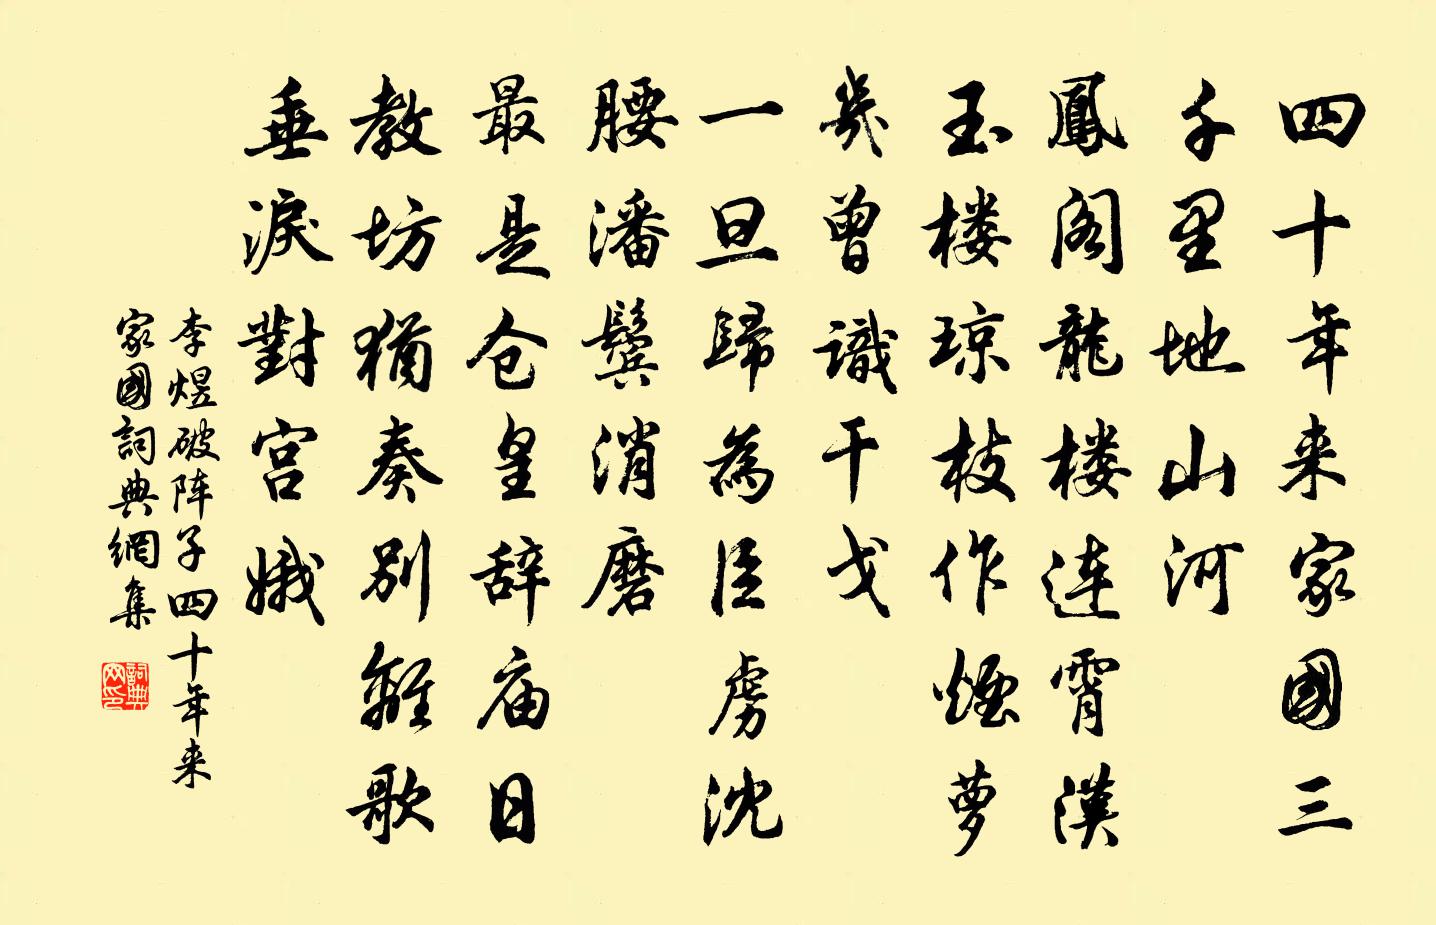 四十年来家國三
千里地山河
鳳阁龍楼連霄漢
玉楼琼枝作煙萝
幾曾識干戈
一旦歸為臣虏沈
腰潘鬓消磨
最是仓皇辞庙日
教坊猶奏别離歌
垂淚對宫娥
李煜破阵子四十年来
家國詞典網集
詞典
网印